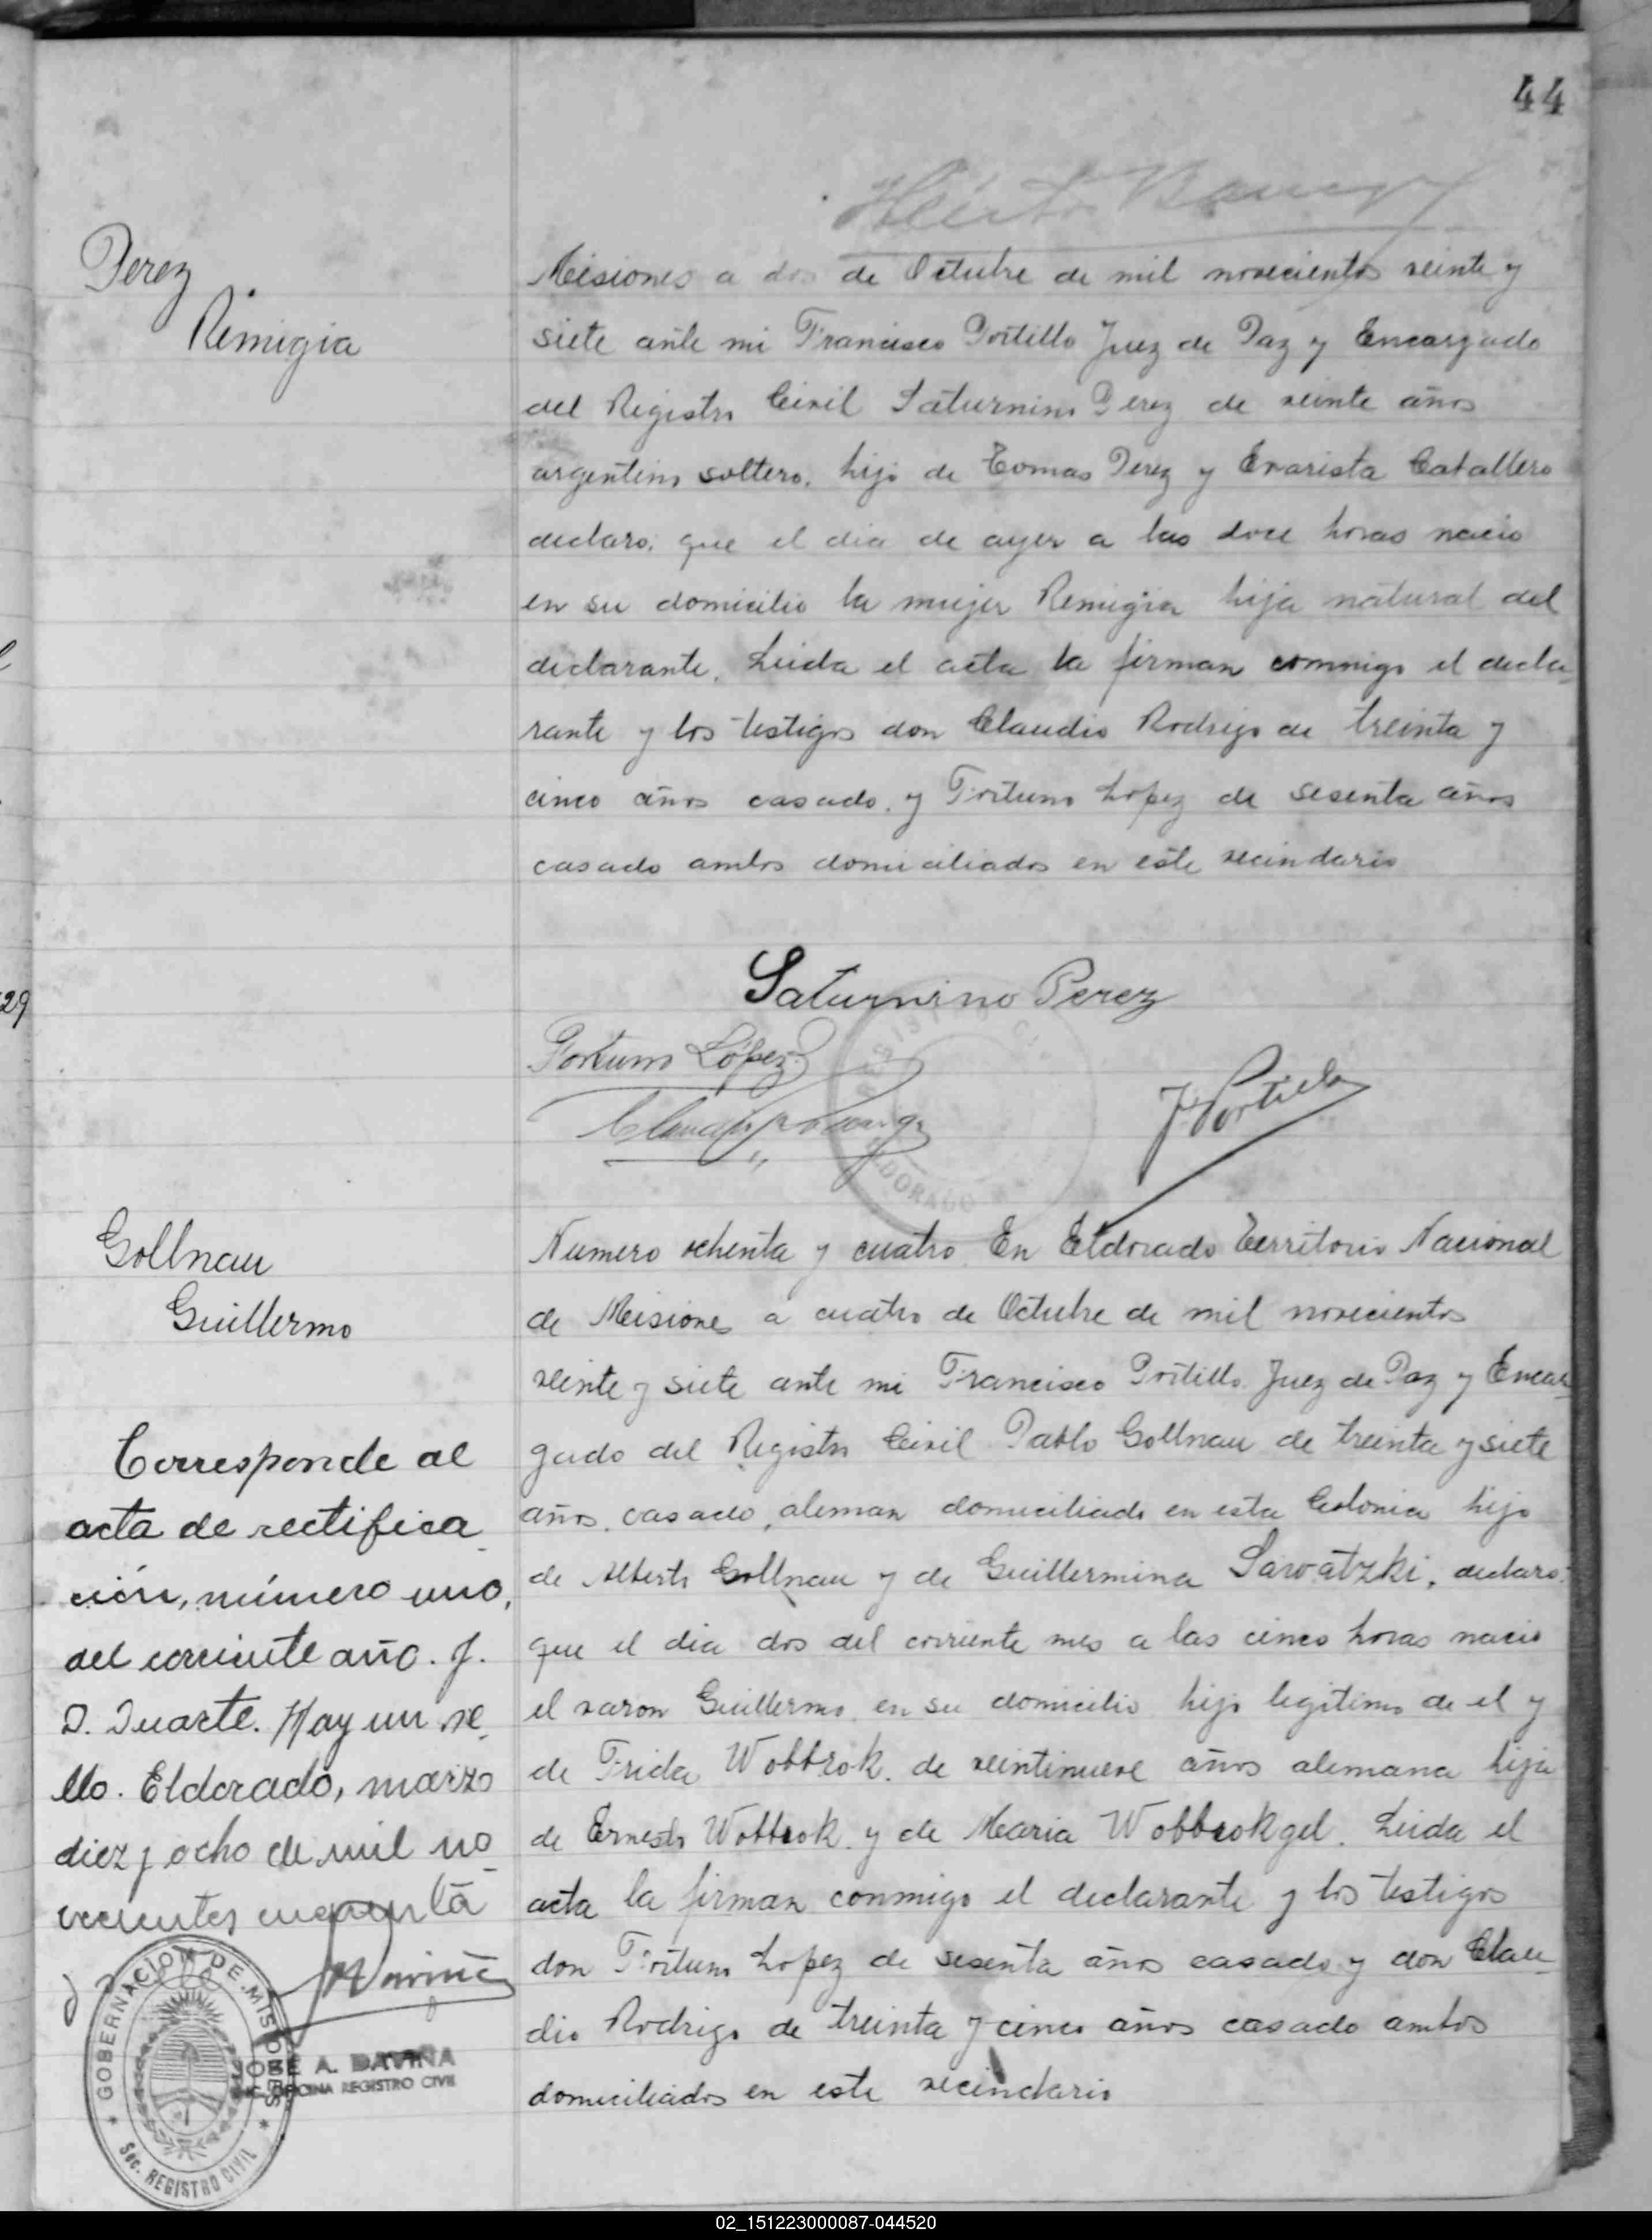 44
Perez
Remigia
Misiones a dos de Octubre de mil novecientos veinte y
siete ante mi Francisco Portillo Juez de Paz y Encargado
del Registro Civil Saturnino Perez de veinte años
argentino soltero, hijo de Tomas Perez y Evarista Caballero
declaro: que el dia de ayer a las doce horas nacio
en su domicilio la mujer Remigia hija natural del
declarante. Leida el acta la firman conmigo el decla-
rante y los testigos don Claudio Rodrigo de treinta y
cinco años casado, y Fortuno Lopez de sesenta años
casado ambos domiciliados en este vecindario
29
Saturnino Perez
Fortuno López
F. Portillo
REGISTRO C
ELDORADO
Gollnau
Guillermo
Numero ochenta y cuatro. En Eldorado Territorio Nacional
de Misiones a cuatro de Octubre de mil novecientos
veinte y siete ante mi Francisco Portillo Juez de Paz y Encar-
gado del Registro Civil Pablo Gollnau de treinta y siete
años, casado, aleman domiciliado en esta Colonia hijo
de Alberto Gollnau y de Guillermina Sawatzki, declaro:
que el dia dos del corriente mes a las cinco horas nacio
el varon Guillermo en su domicilio hijo legitimo de el y
de Frida Wobbrok de veintinueve años alemana hija
de Ernesto Wobbrok y de Maria Wobbrokgel. Leida el
acta la firman conmigo el declarante y los testigos
don Fortuno Lopez de sesenta años casado y don Clau-
dio Rodrigo de treinta y cinco años casado ambos
domiciliados en este vecindario
Corresponde al
acta de rectifica-
ción, número uno,
del corriente año. J.
D. Duarte. Hay un se-
llo. Eldorado, marzo
diez y ocho de mil no-
vecientos cuarenta
GOBERNACION DE MISIONES
Sec. REGISTRO CIVIL
JOSE A. DAVIÑA
OFICINA REGISTRO CIVIL
02_151223000087-044520